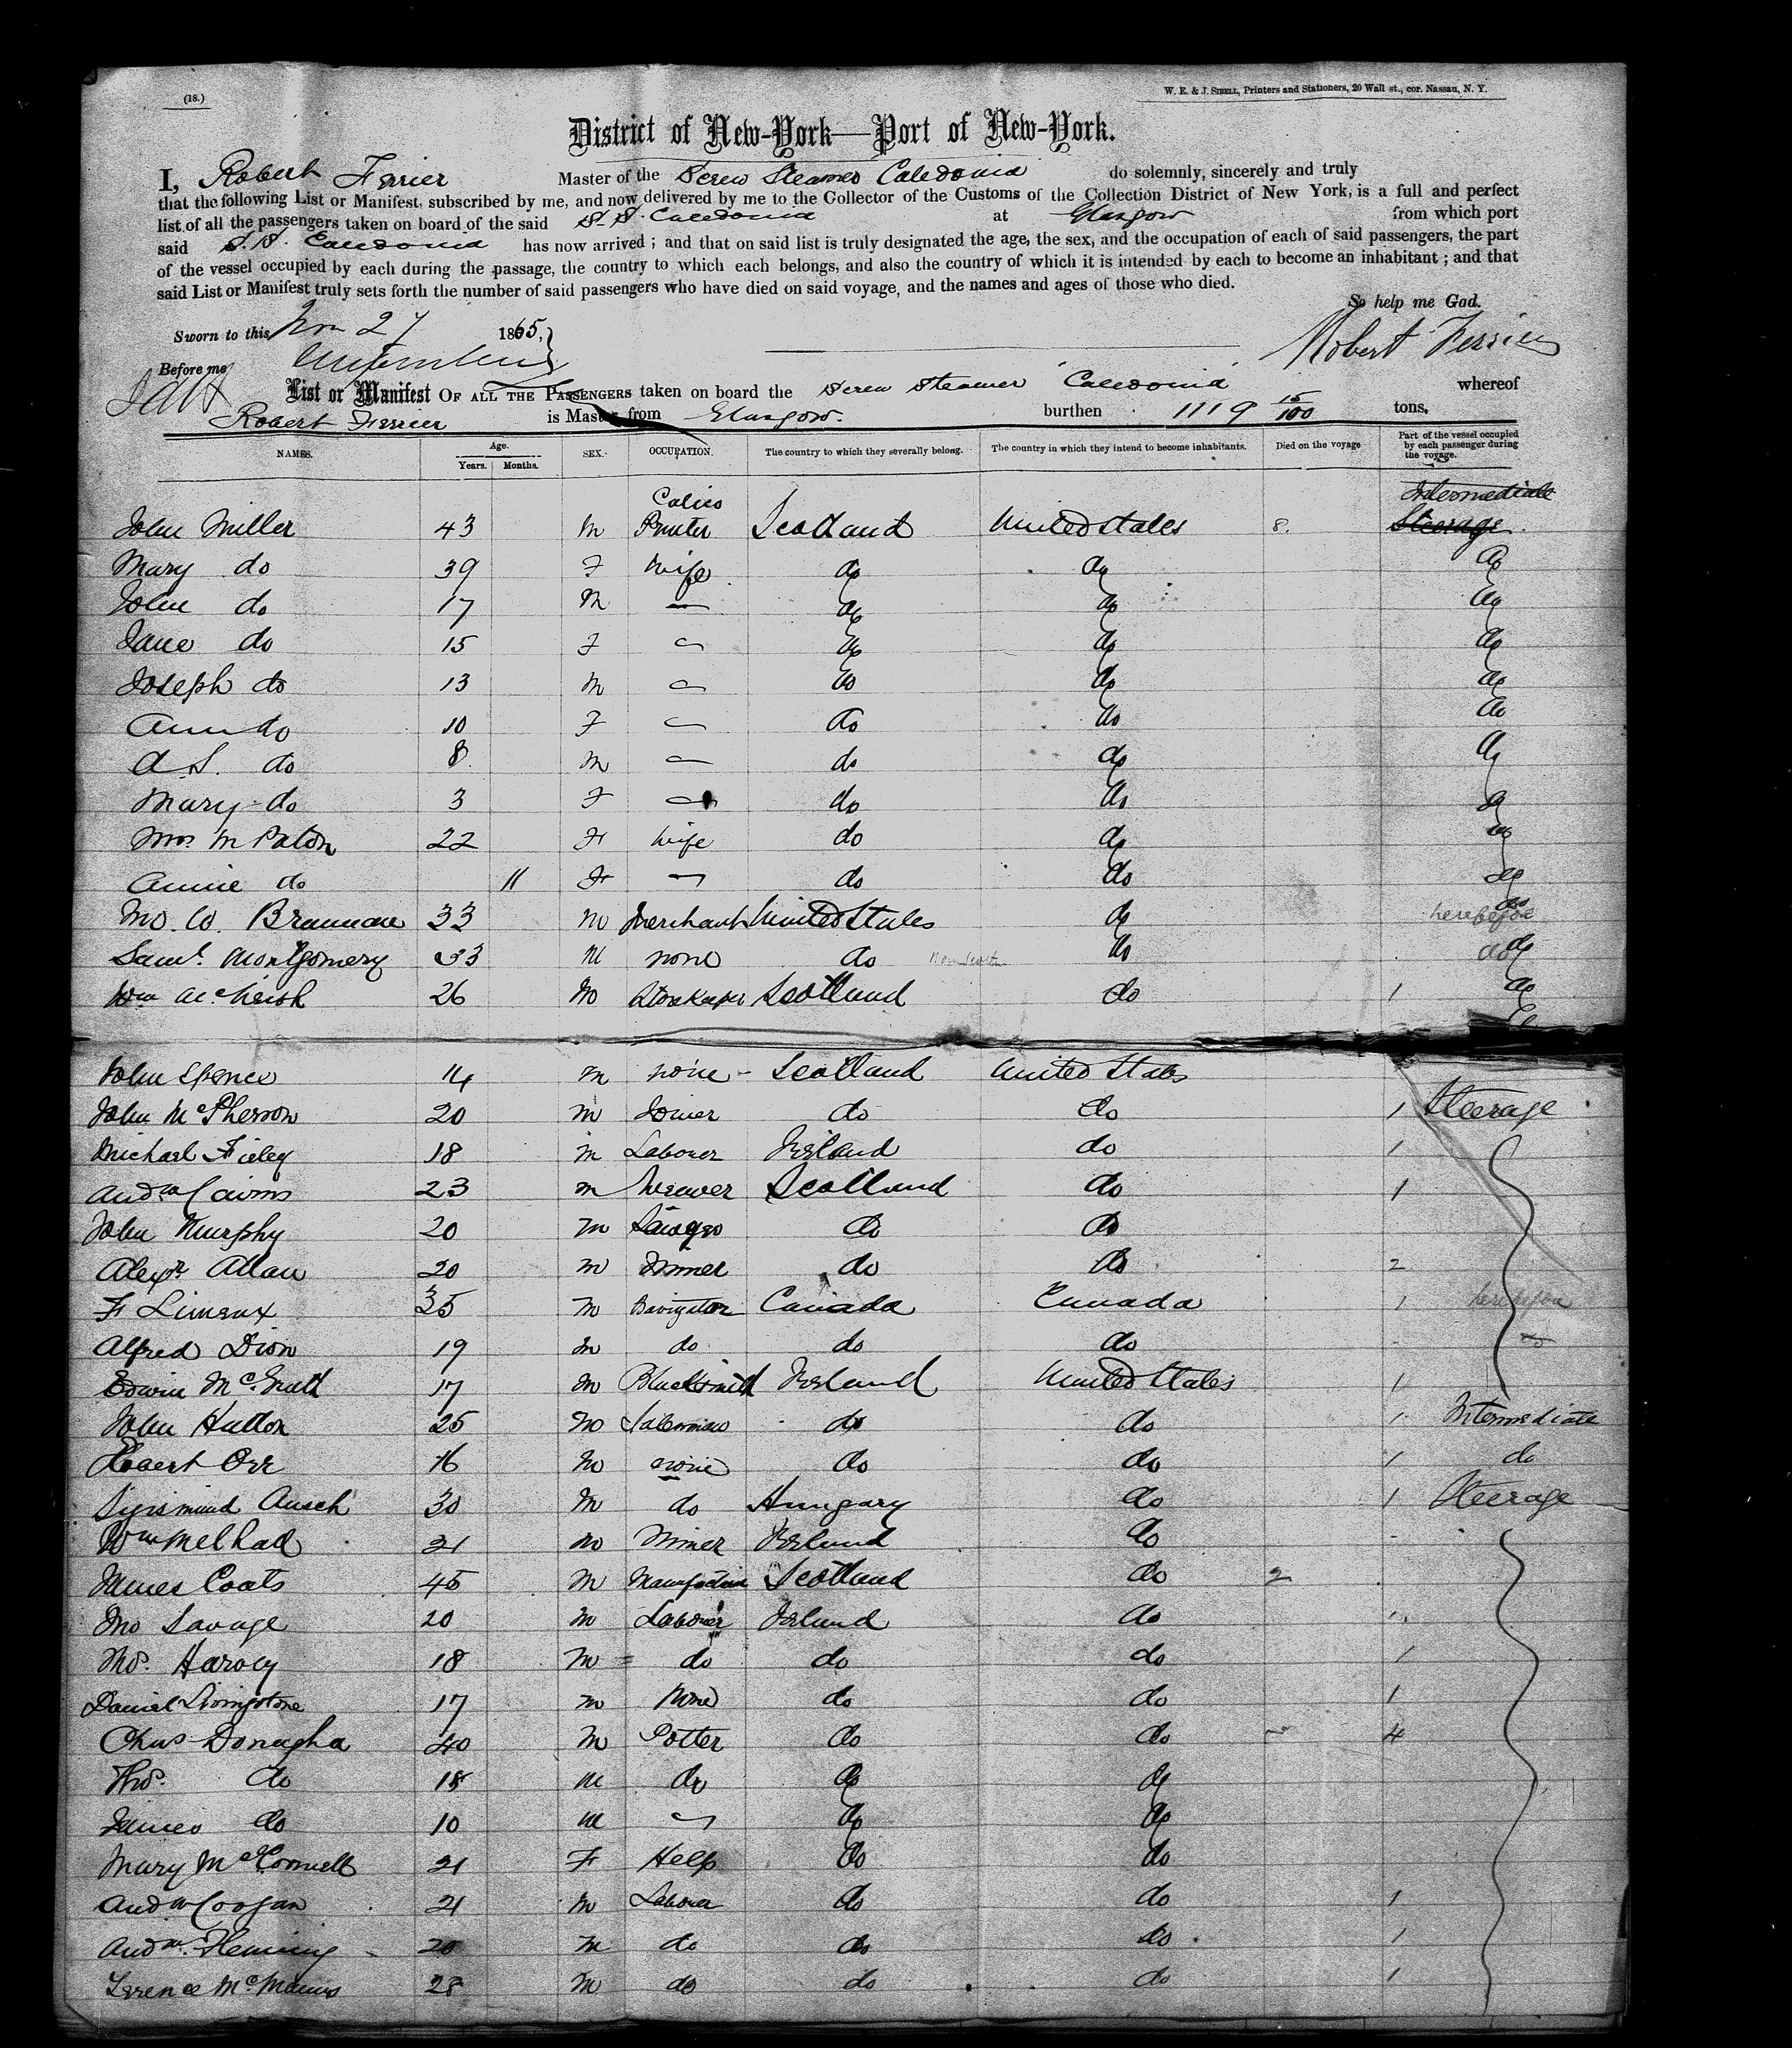 (18.)
W. E. & J. SIBELL, Printers and Stationers, 20 Wall st., cor. Nassau, N. Y.
District of New-York—Port of New-York.
I, Robert Ferrier Master of the Screw Steamer Caledonia do solemnly, sincerely and truly
that the following List or Manifest, subscribed by me, and now delivered by me to the Collector of the Customs of the Collection District of New York, is a full and perfect
list of all the passengers taken on board of the said S. S. Caledonia at Glasgow from which port
said S. S. Caledonia has now arrived; and that on said list is truly designated the age, the sex, and the occupation of each of said passengers, the part
of the vessel occupied by each during the passage, the country to which each belongs, and also the country of which it is intended by each to become an inhabitant; and that
said List or Manifest truly sets forth the number of said passengers who have died on said voyage, and the names and ages of those who died.
So help me God.
Sworn to this Nov 27 1865,
Robert Ferrier
Before me
List or Manifest OF ALL THE PASSENGERS taken on board the Screw Steamer Caledonia whereof
Robert Ferrier is Master, from Glasgow. burthen 1119 15/100 tons.
NAMES. Age. Years. Months. SEX. OCCUPATION. The country to which they severally belong. The country in which they intend to become inhabitants. Died on the voyage Part of the vessel occupied by each passenger during the voyage.
Intermediate
John Miller 43 M Calico Printer Scotland United States 8. Steerage
Mary do 39 F Wife do do do
John do 17 M — do do do
Jane do 15 F — do do do
Joseph do 13 M — do do do
Ann do 10 F — do do do
A. S. do 8 M — do do do
Mary do 3 F — do do do
Mrs. M Paton 22 F Wife do do do
Annie do 11 F — do do do
33 M Merchant United States do do
Saml. Montgomery 33 M none do do do
Wm 26 M Storekeeper Scotland do 1 do
John Spence 14 M none - Scotland United States
John McPherson 20 M Joiner do do 1 Steerage
Michael 18 M Labourer Ireland do 1
Andw Cairns 23 M Weaver Scotland do 1
John Murphy 20 M Sawyer do do
Alexr Allan 20 M do do 2
F 35 M Navigator Canada Canada 1
Alfred Dion 19 M do do do
Edwin McGrath 17 M Blacksmith Ireland United States 1
John Hutton 25 M Salesman do do 1 Intermediate
Robert Orr 16 M none do do 1 do
Sigismund 30 M do Hungary do 1 Steerage
Wm 21 M Miner Ireland do
James Coats 45 M Manufacturer Scotland do 2
Jno Savage 20 M Labourer Ireland do 1
Thos. 18 M do do do 1
Daniel Livingstone 17 M None do do 1
Chas Donagha 40 M Potter do do 4
Thos. do 18 M do do do
James do 10 M — do do
Mary McConnell 21 F Help do do
Andw Coogan 21 M Labourer do do 1
Andw. Fleming 20 M do do do 1
Terence McManus 28 M do do do 1